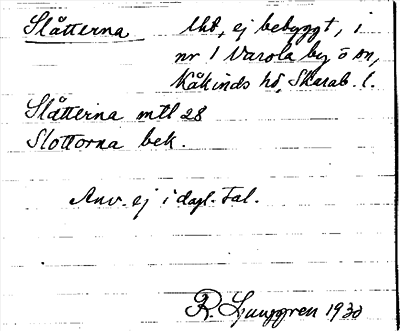 Slåtterna Uht, ej bebyggt, i
nr 1 Varola by o sn,
Kåkinds hd, Skarab. l.
Slåtterna mtl 28
Slottorna bek.
Anv. ej i dagl. tal.
R. Ljunggren 1930